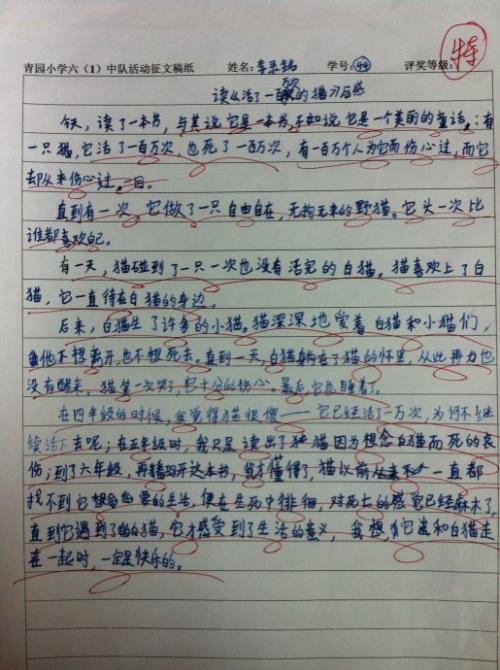 特
青园小学六（1）中队活动征文稿纸 姓名: 李 学号: 44 评奖等级:
读《活了一百万次的猫》有感
今天，读了一本书，与其说它是一本书，不如说它是一个美丽的童话。：有
一只猫，它活了一百万次，也死了一百万次，有一百万个人为它而伤心过，而它
却从来伤心过。一回。
直到有一次，它做了一只自由自在，无拘无束的野猫。它头一次比
谁都喜欢自己。
有一天，猫碰到了一只一次也没有活完的白猫。猫喜欢上了白
猫，它一直待在白猫的身边。
后来，白猫生了许多的小猫。猫深深地爱着白猫和小猫们，
他不想离开，也不想死去。直到一天，白猫躺在了猫的怀里，从此再力也
没有醒来，猫第一次哭了，它十分的伤心。最后它也睡着了。
在四年级的时候，我觉得猫很傻——它已经活了一万次，为何不继
续活下去呢；在五年级时，我只是读出了猫因为想念白猫而死的哀
伤；到了六年级，再翻开这本书，我才懂得了，猫以前从来一直都
找不到它想要的生活，便在生死中徘徊，对死亡的感官已经麻木了，
直到它遇到了白猫，它才感受到了生活的意义，我想，当它选和白猫走
在一起时，一定是快乐的。